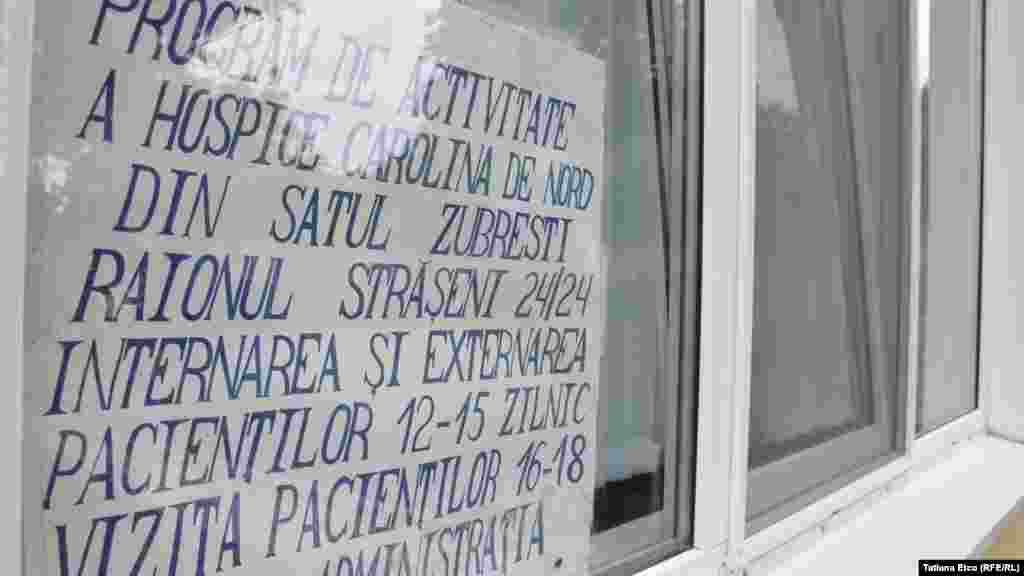 PROGRAM DE ACTIVITATE
A HOSPICE CAROLINA DE NORD
DIN SATUL ZUBREȘTI
RAIONUL STRĂȘENI 24/24
INTERNAREA ȘI EXTERNAREA
PACIENȚILOR 12-15 ZILNIC
VIZITA PACIENȚILOR 16-18
ADMINISTRAȚIA
Tatiana Etco (RFE/RL)